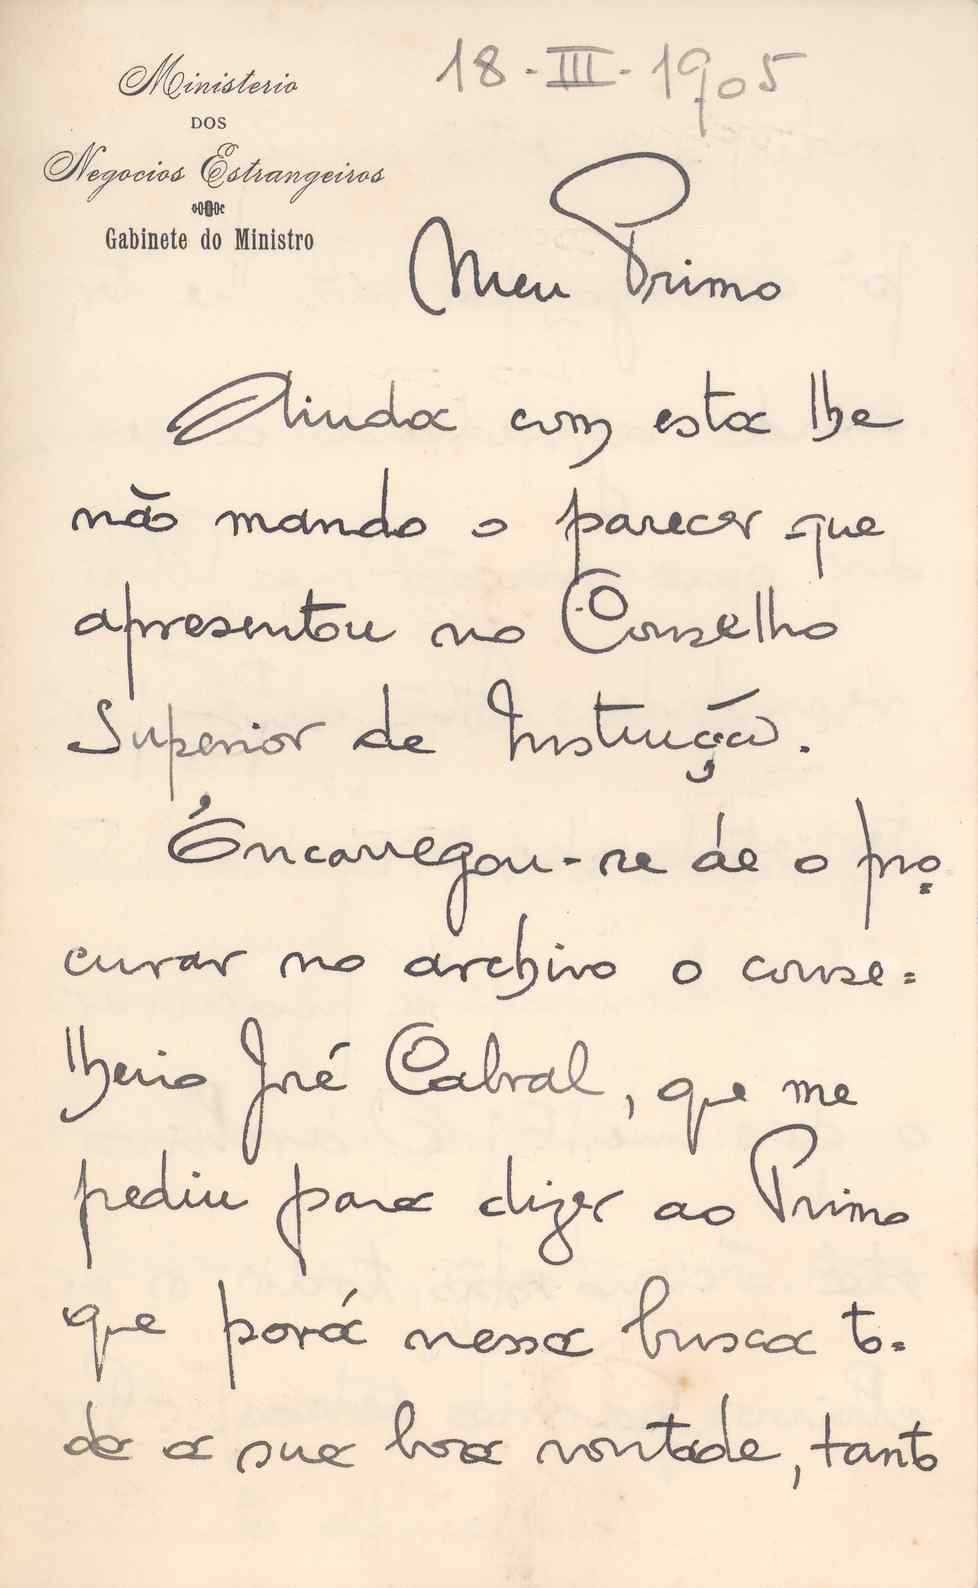 18-III-1905
Ministerio
DOS
Negocios Estrangeiros
Gabinete do Ministro
Meu Primo
Ainda com esta lhe
não mando o parecer que
apresentou no Conselho
Superior de Instrução.
Encarregou-se de o pro=
curar no archivo o conse=
lheiro José Cabral, que me
pediu para dizer ao Primo
que porá nessa busca to=
da a sua boa vontade, tanto